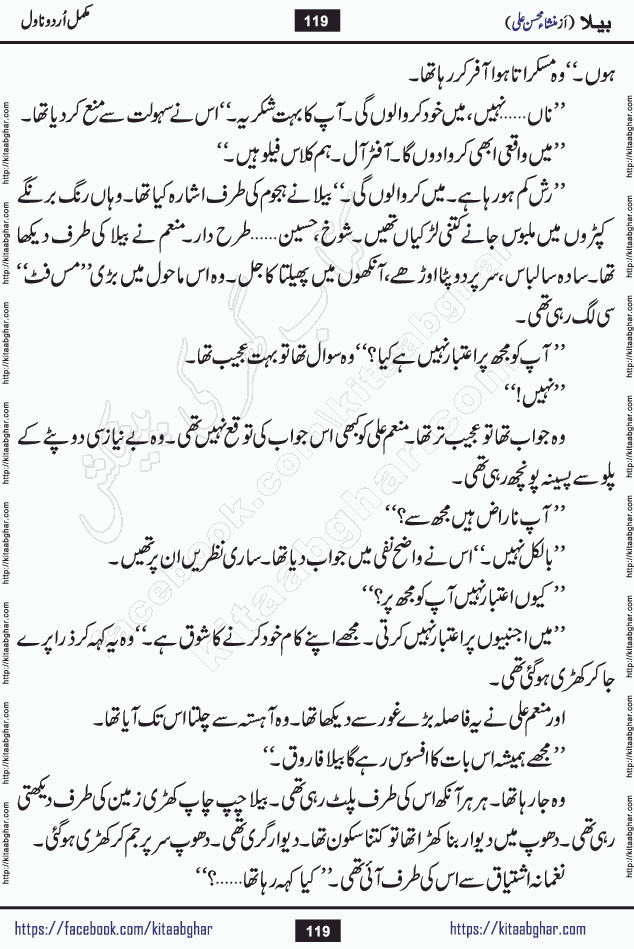 بیلا (از منشاء محسن علی)
119
مکمل اُردو ناول
ہوں۔‘‘ وہ مسکراتا ہوا آفر کر رہا تھا۔
’’ناں......نہیں، میں خود کروا لوں گی۔ آپ کا بہت شکریہ۔‘‘ اس نے سہولت سے منع کر دیا تھا۔
’’میں واقعی ابھی کروا دوں گا۔ آفٹر آل۔ ہم کلاس فیلو ہیں۔‘‘
’’رش کم ہو رہا ہے۔ میں کروا لوں گی۔‘‘ بیلا نے ہجوم کی طرف اشارہ کیا تھا۔ وہاں رنگ برنگے
کپڑوں میں ملبوس جانے کتنی لڑکیاں تھیں۔ شوخ، حسین......طرح دار۔ منعم نے بیلا کی طرف دیکھا
تھا۔ سادہ سا لباس، سر پر دوپٹا اوڑھے، آنکھوں میں پھیلتا کاجل۔ وہ اس ماحول میں بڑی ’’مس فٹ‘‘
سی لگ رہی تھی۔
’’آپ کو مجھ پر اعتبار نہیں ہے کیا؟‘‘ وہ سوال تھا تو بہت عجیب تھا۔
’’نہیں!‘‘
وہ جواب تھا تو عجیب تر تھا۔ منعم علی کو کبھی اس جواب کی توقع نہیں تھی۔ وہ بے نیاز سی دوپٹے کے
پلو سے پسینہ پونچھ رہی تھی۔
’’آپ ناراض ہیں مجھ سے؟‘‘
’’بالکل نہیں۔‘‘ اس نے واضح نفی میں جواب دیا تھا۔ ساری نظریں ان پر تھیں۔
’’کیوں اعتبار نہیں آپ کو مجھ پر؟‘‘
’’میں اجنبیوں پر اعتبار نہیں کرتی۔ مجھے اپنے کام خود کرنے کا شوق ہے۔‘‘ وہ یہ کہہ کر ذرا پرے
جا کر کھڑی ہو گئی تھی۔
اور منعم علی نے یہ فاصلہ بڑے غور سے دیکھا تھا۔ وہ آہستہ سے چلتا اس تک آیا تھا۔
’’مجھے ہمیشہ اس بات کا افسوس رہے گا بیلا فاروق۔‘‘
وہ جا رہا تھا۔ ہر ہر آنکھ اس کی طرف پلٹ رہی تھی۔ بیلا چپ چاپ کھڑی زمین کی طرف دیکھتی
رہی تھی۔ دھوپ میں دیوار بنا کھڑا تھا تو کتنا سکون تھا۔ دیوار گری تھی۔ دھوپ سر پر جم کر کھڑی ہو گئی۔
نغمانہ اشتیاق سے اس کی طرف آئی تھی۔ ’’کیا کہہ رہا تھا......؟‘‘
https://facebook.com/kitaabghar
119
https://kitaabghar.com
http://kitaabghar.com
کتاب گھر کی پیشکش
facebook.com/kitaabghar
kitaabghar.com